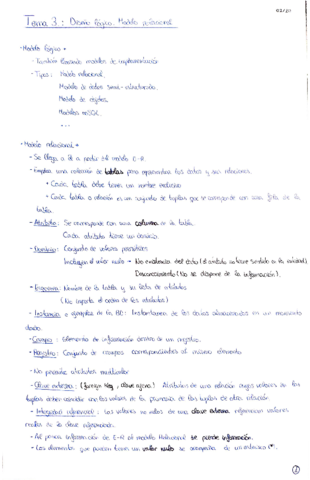 02/20
Tema 3: Diseño lógico. Modelo relacional
- Modelo lógico •
- También llamado modelos de implementación
- Tipos: Modelo relacional.
Modelo de datos semi-estructurado.
Modelo de objetos.
Modelos noSQL.
...
- Modelo relacional •
- Se llega a él a partir del modelo E-R
- Emplea una colección de tablas para representar los datos y sus relaciones.
• Cada tabla debe tener un nombre exclusivo
• Cada tabla o relación es un conjunto de tuplas que se corresponde con una fila de la
tabla.
- Atributo: Se corresponde con una columna de la tabla.
Cada atributo tiene un dominio.
- Dominio: Conjunto de valores permitidos
Incluyen el valor nulo → No existencia del dato (el atributo no tiene sentido en la entidad)
Desconocimiento (No se dispone de la información).
- Esquema: Nombre de la tabla y su lista de atributos
(No importa el orden de los atributos)
- Instancia o ejemplar de la BD: Instantánea de los datos almacenados en un momento
dado.
- Campo: Elemento de información acerca de un objeto.
- Registro: Conjunto de campos correspondientes al mismo elemento
- No presenta atributos multivalor
- Clave externa: (foreign key, clave ajena) Atributos de una relación cuyos valores en las
tuplas deben coincidir con los valores de la primaria de las tuplas de otra relación.
- Integridad referencial: Los valores no nulos de una clave externa referencian valores
reales de la clave referenciada.
- Al pasar información de E-R al modelo Relacional se pierde información.
- Los elementos que pueden tener un valor nulo se acompaña de un asterisco (*).
①